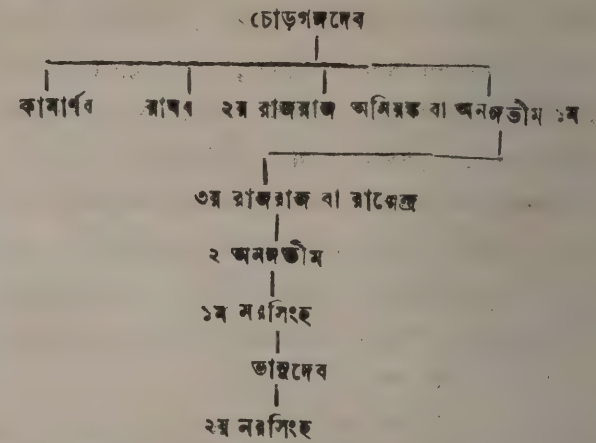 চোড়গঙ্গদেব
কামার্ণব রাঘব ২য় রাজরাজ অনিয়ঙ্ক বা অনঙ্গভীম ১ম
৩য় রাজরাজ বা রাজেন্দ্র
২ অনঙ্গভীম
১ম নরসিংহ
ভানুদেব
২য় নরসিংহ